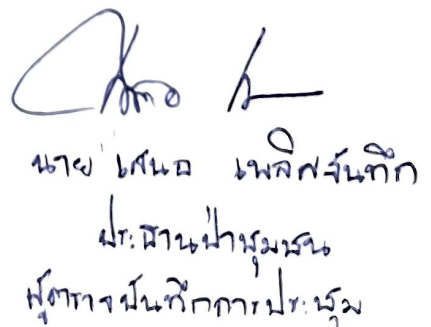 นาย เสนอ เพลิดจันทึก
ประธานป่าชุมชน
ผู้ตรวจบันทึกการประชุม